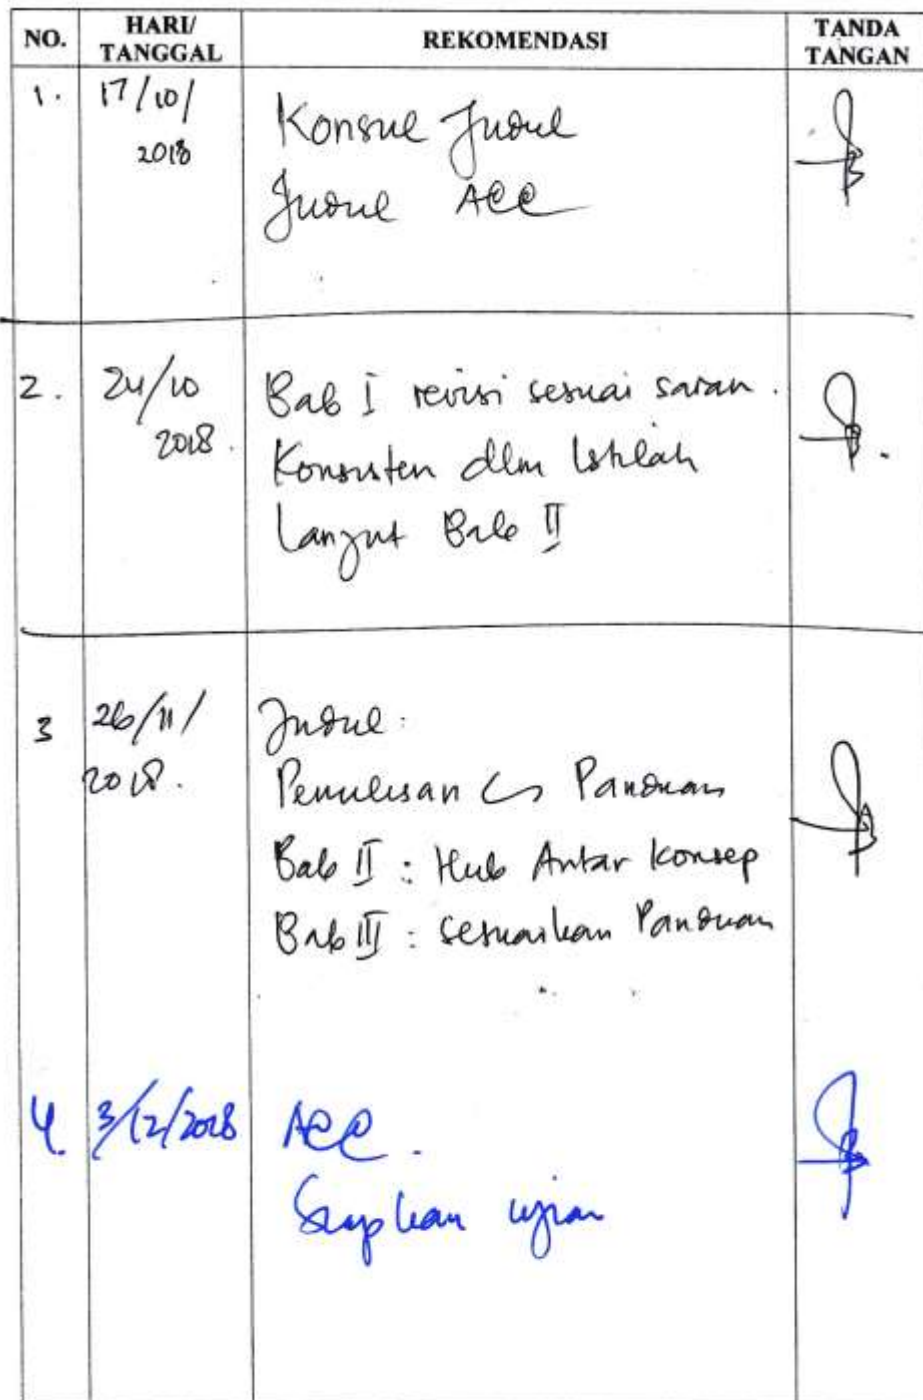 NO.
HARI/
TANGGAL
REKOMENDASI
TANDA
TANGAN
1.
17/10/
2018
Konsul Judul
Judul ACC
2.
24/10
2018.
Bab I revisi sesuai saran.
Konsisten dlm Istilah
Lanjut Bab II
3
26/11/
2018.
Judul:
Penulisan Panduan
Bab II : Hub Antar Konsep
Bab III : Sesuaikan Panduan
4.
3/12/2018
ACC.
Siapkan ujian